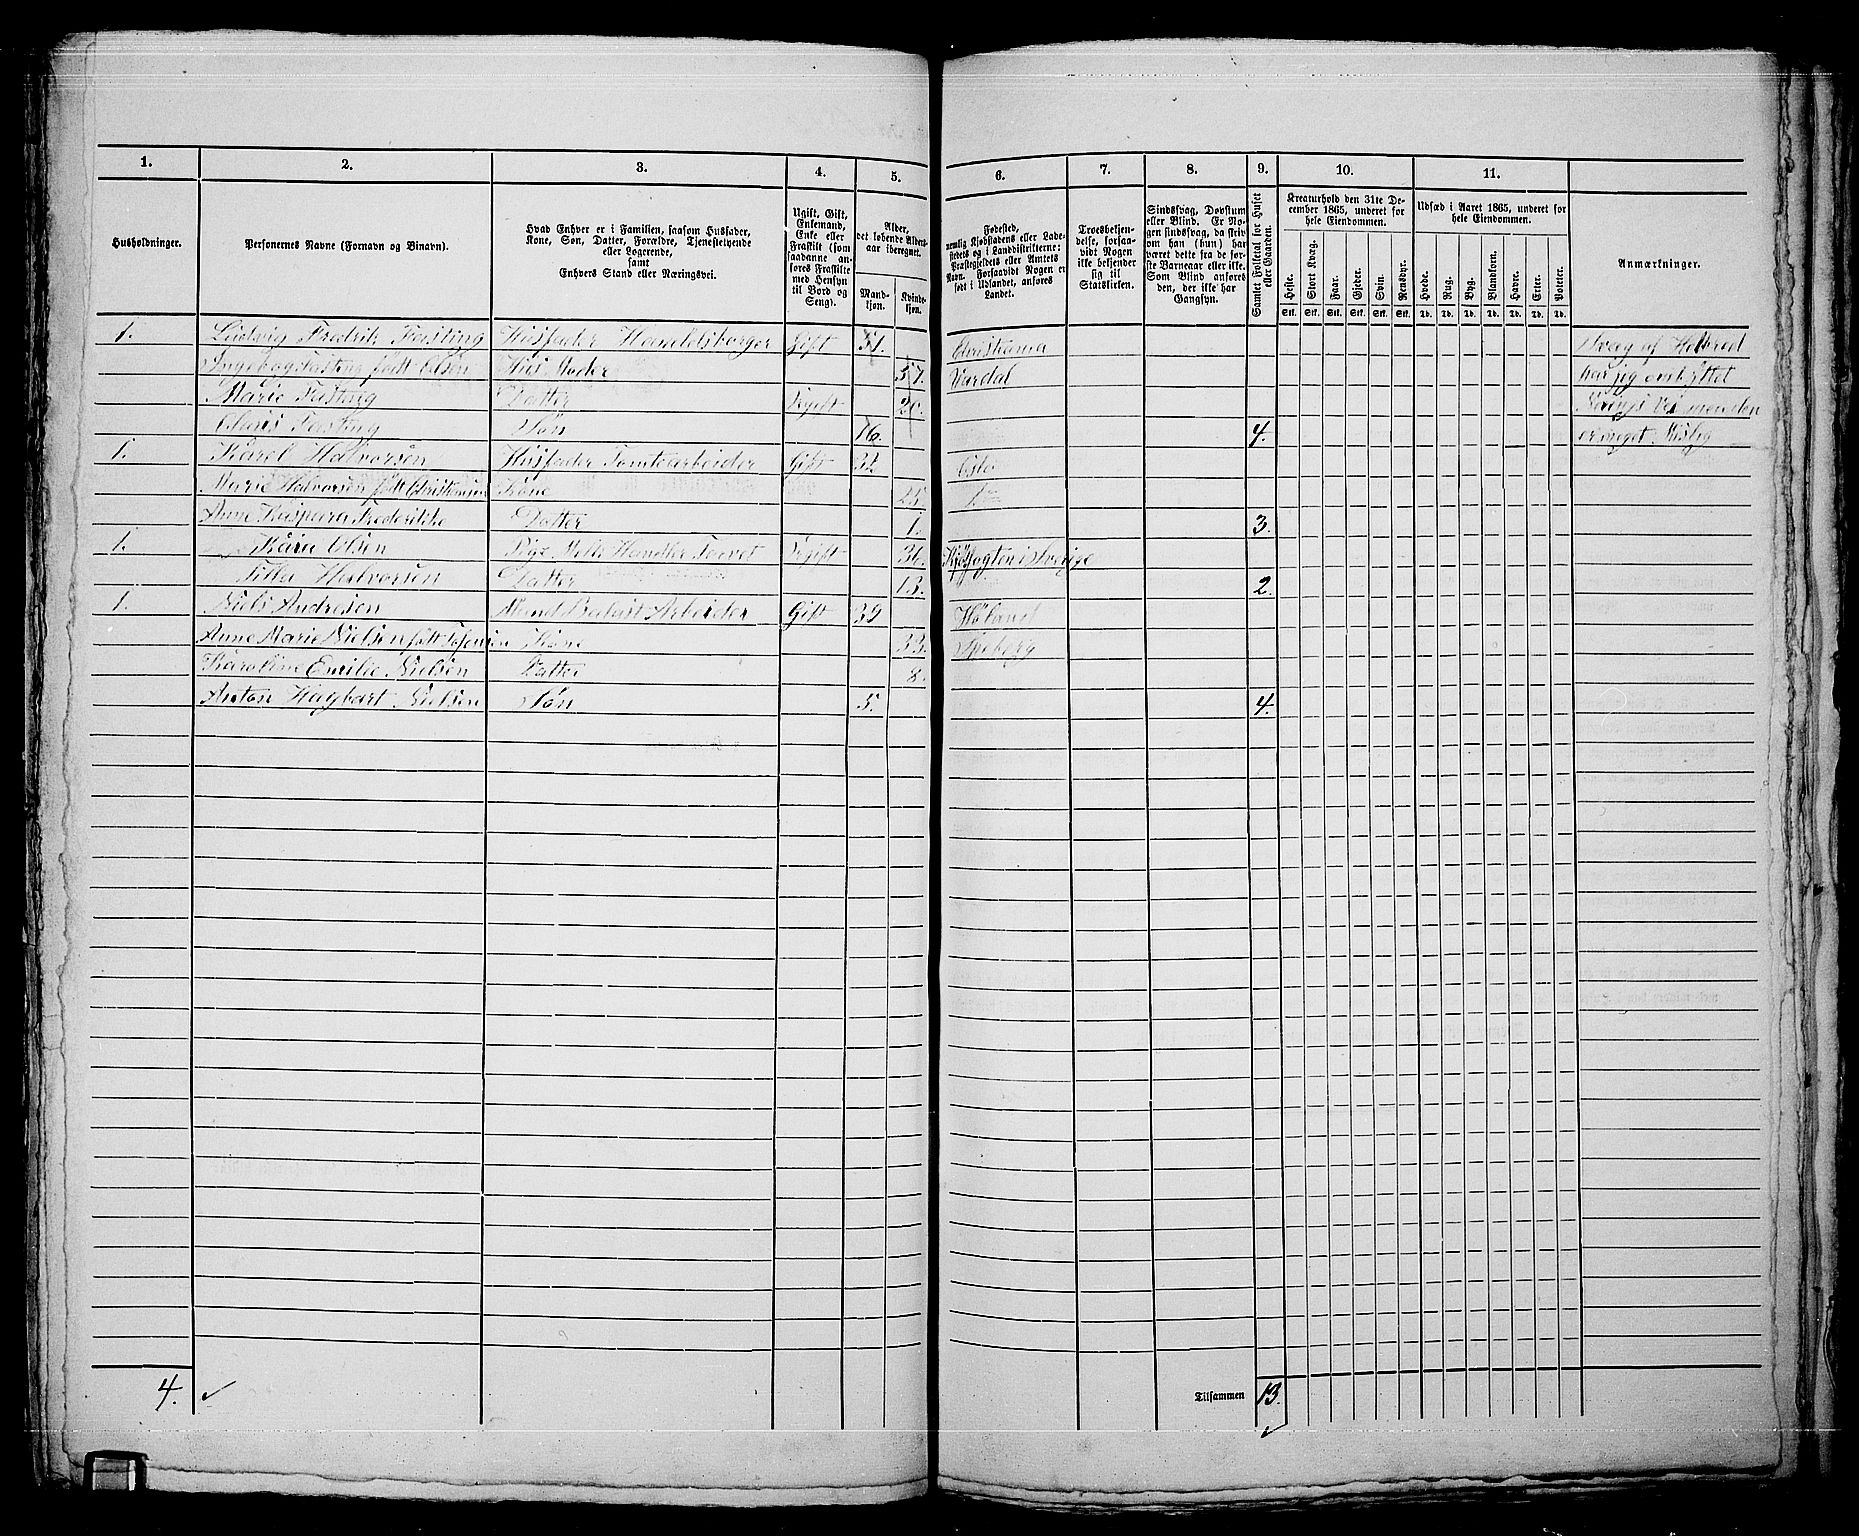 1. 2. 3. 4. 5. 6. 7. 8. 9. 10. 11.
Husholdninger.
Personernes Navne (Fornavn og Binavn).
Hvad Enhver er i Familien, saasom Husfader,
Kone, Søn, Datter, Forældre, Tjenestetyende
eller Logerende,
samt
Enhvers Stand eller Næringsvei.
Ugift, Gift,
Enkemand,
Enke eller
Fraskilt (som
saadanne an-
føres Fraskilte
med Hensyn
til Bord og
Seng).
Alder,
det løbende Alders-
aar iberegnet.
Mand-
kjøn.
Kvinde-
kjøn.
Fødested,
nemlig Kjøbstadens eller Lade-
stedets og i Landdistrikterne:
Præstegjeldets eller Amtets
Navn. Forsaavidt Nogen er
født i Udlandet, anføres
Landet.
Troesbekjen-
delse, forsaa-
vidt Nogen
ikke bekjender
sig til
Statskirken.
Sindssvag, Døvstum
eller Blind. Er No-
gen sindssvag, da skriv
om han (hun) har
været dette fra de før-
ste Barneaar eller ikke.
Som Blind anføres
den, der ikke har
Gangsyn.
Samlet Folketal for Huset
eller Gaarden.
Kreaturhold den 31te De-
cember 1865, underet for
hele Eiendommen.
Heste. Stort Kvæg. Faar. Gjeder. Svin. Rensdyr.
Stk. Stk. Stk. Stk. Stk. Stk.
Udsæd i Aaret 1865, underet for
hele Eiendommen.
Hvede. Rug. Byg. Blandkorn. Havre. Erter. Poteter.
Td. Td. Td. Td. Td. Td. Td.
Anmærkninger.
1. Ludvig Fredrik Fasting Husfader Handelsborger Gift 51. Christiania Svag af Helbred
Ingebog Fasting født Olsen Hus Moder 57. Vardal har sig
Marie Fasting Datter Ugift 20.
Claus Fasting Søn 16. 4. er meget
1. Karel Halvorsen Husfader Tomtearbeider Gift 32 Oslo
Marie Halvorsen født Christensen Kone 25.
Anne Kaspara Frederikke Datter 1. 3.
1. Karen Olsen Pige Handler Ugift 36. i Sverige
Tilla Halvorsen Datter 13. 2.
1. Niels Andresen Mand Balast Arbeider Gift 39 Høland
Anne Marie Nielsen født Kone 33. Speberg
Karoline Emilie Nielsen Datter 8.
Anton Hagbart Nielsen Søn 5. 4.
4. Tilsammen 13.